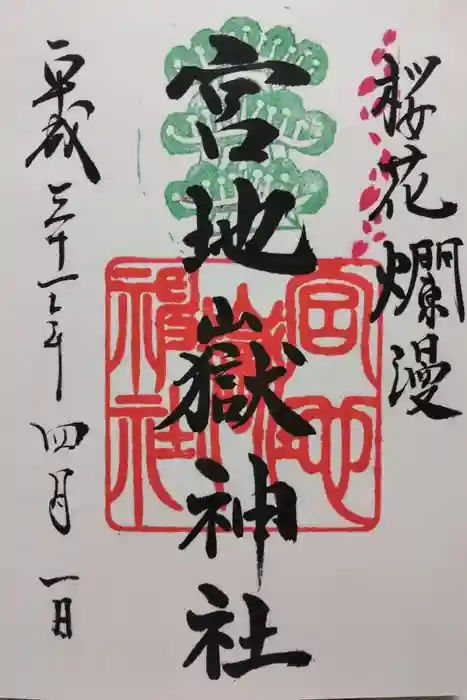 桜花爛漫
宮地嶽神社
平成三十一年四月一日
宮地嶽神社